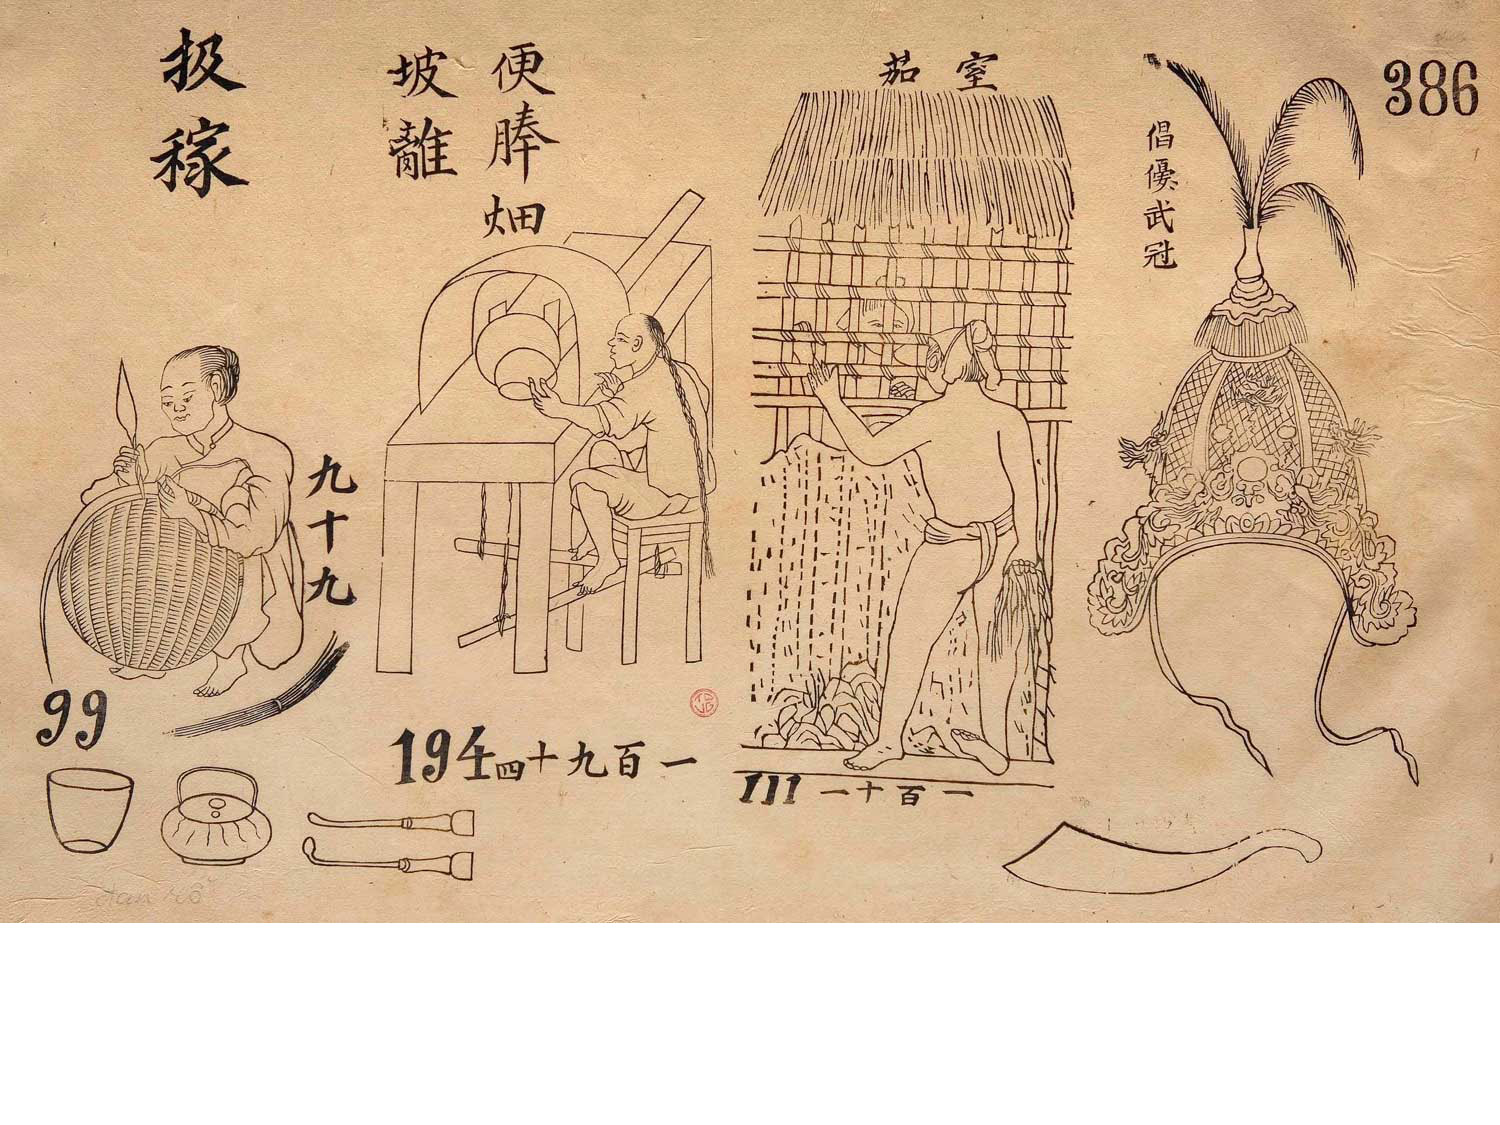 386
扱稼
便畑
坡離
室茹
倡優武冠
九十九
99
194
一百九十四
111
一百十一
đan rổ